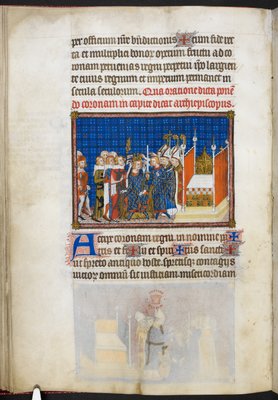 per officium nr̄e bn̄dictionis ✠ cum fide rec
ta et multiplici bonor̄ operum fructu ad co
ronam peruenias regni perpetui ip̄o largien
te cuius regnum et imperium permanet in
secula seculorum. Qua oratione dicta ponēs
do coronam in capite dicat archiepiscopus
Accipe coronam regni. in nomine pa✠
tris et fi✠lii et spiri✠tus sancti ✠
ut spreto antiquo hoste. spretisq; contagijs
uicior̄ omniū sic iusticiam misericordiam